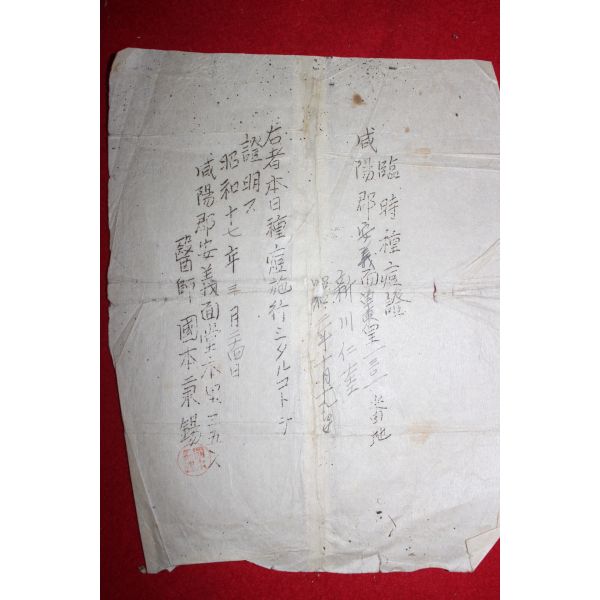 臨時種痘證
咸陽郡安義面
新川仁奎
昭和二年十月
右者本日種痘施行シタルコトヲ
證明ス
昭和十七年三月二四日
咸陽郡安義面堂本里三五六
醫師國本秉錫